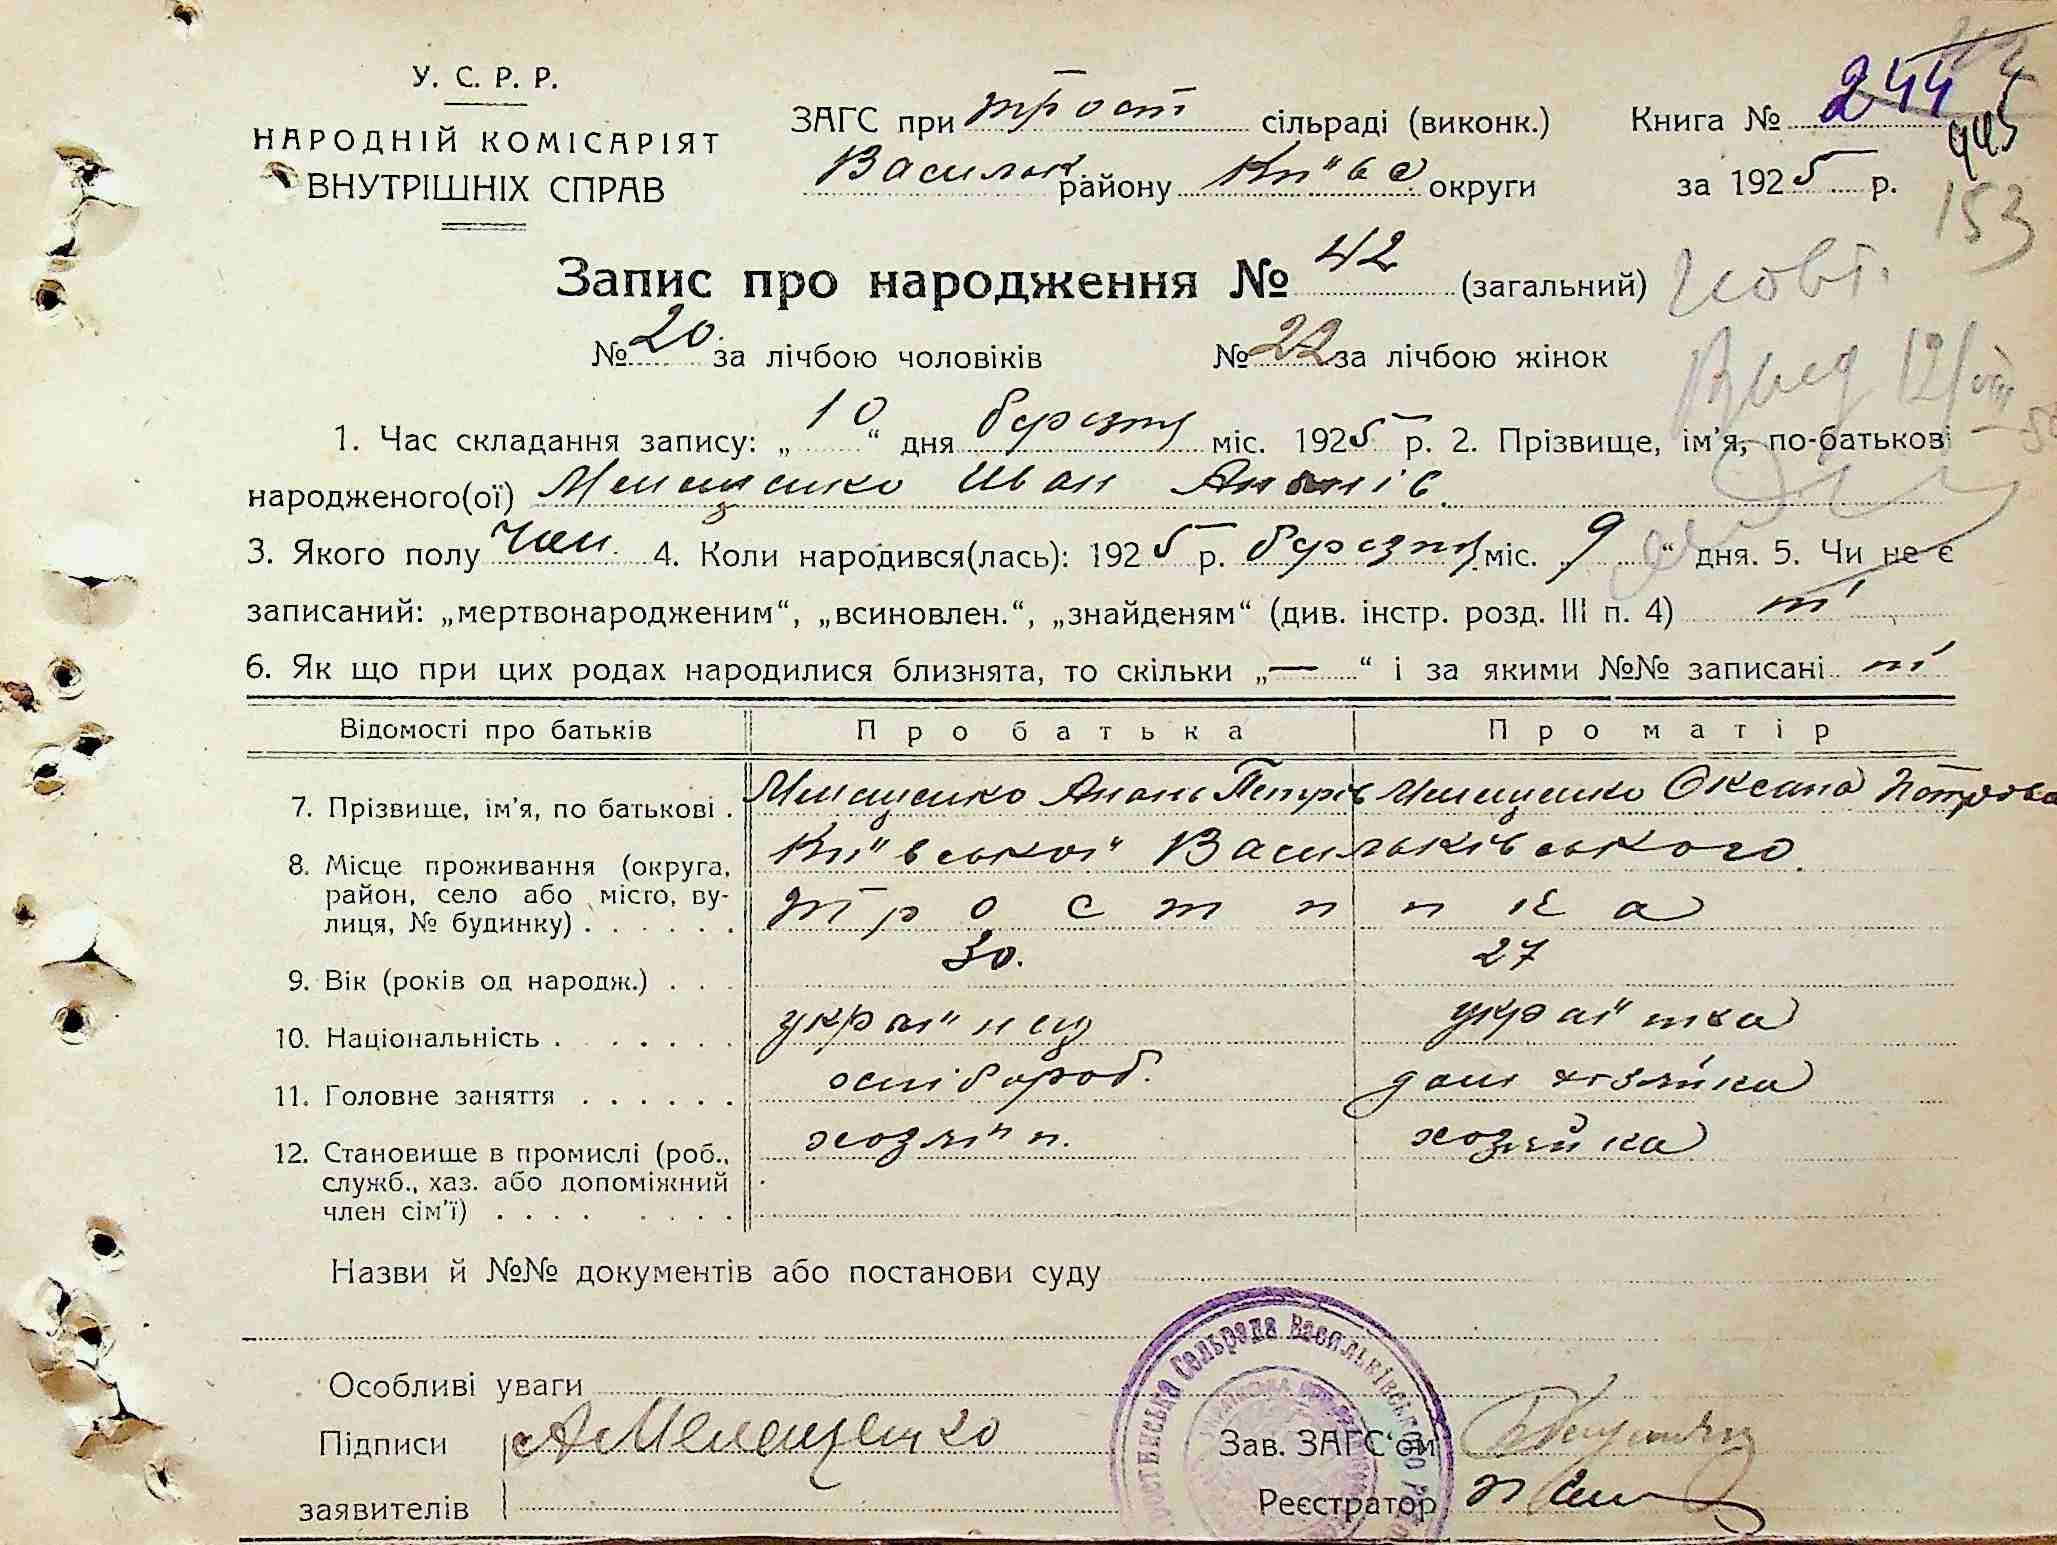 У. С. Р. Р.
НАРОДНІЙ КОМІСАРІЯТ
ВНУТРІШНІХ СПРАВ
ЗАГС при Трост сільраді (виконк.)
Васильк. району Київс округи
Книга № 244
445
за 1925 р.
153
Запис про народження № 42 (загальний)
№ 20. за лічбою чоловіків № 22 за лічбою жінок
1. Час складання запису: „10“ дня березня міс. 1925 р. 2. Прізвище, ім'я, по-батькові
народженого(ої) Мелещенко Іван Ананіїв.
3. Якого полу Чол. 4. Коли народився(лась): 1925 р. березня міс. 9 “ дня. 5. Чи не є
записаний: „мертвонародженим“, „всиновлен.“, „знайденям“ (див. інстр. розд. III п. 4) ні
6. Як що при цих родах народилися близнята, то скільки „—“ і за якими №№ записані ні
Відомості про батьків Про батька Про матір
7. Прізвище, ім'я, по батькові . Мелещенко Ананій Петрів Мелещенко Оксана Петрова
8. Місце проживання (округа, район, село або місто, вулиця, № будинку) . . . . . . Київської Васильківського.
Тростинка
9. Вік (років од народж.) . . . 30. 27
10. Національність . . . . . . . українец українка
11. Головне заняття . . . . . . хлібороб. дом хозяйка
12. Становище в промислі (роб., служб., хаз. або допоміжний член сім'ї) . . . . . . . . хозяїн. хозяйка
Назви й №№ документів або постанови суду
Особливі уваги
Підписи А Мелещенко
заявителів
Зав. ЗАГС'ом
Реєстратор
Сельрада Васильківського